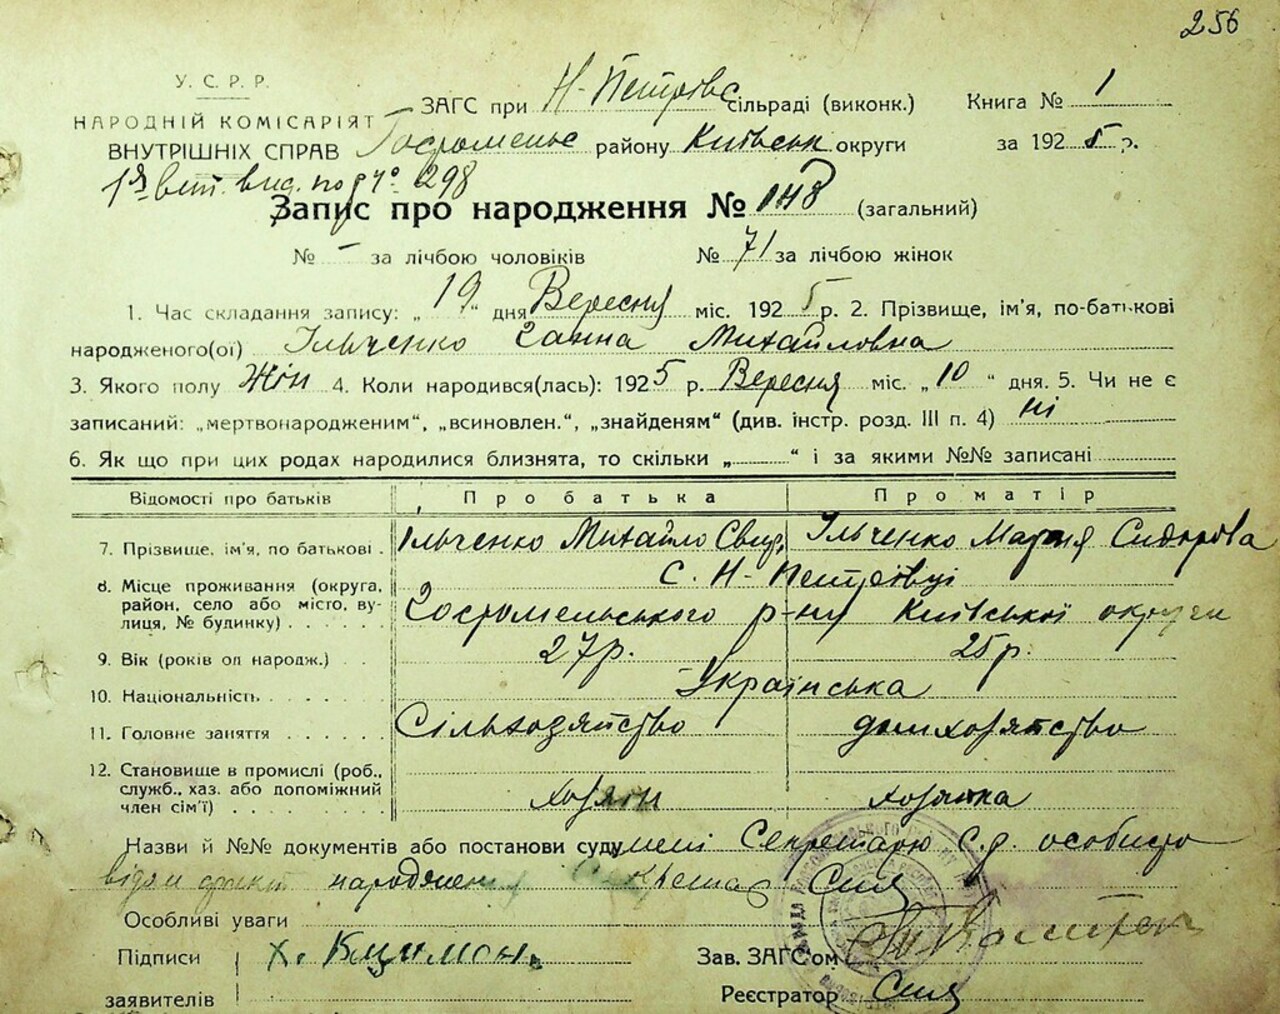 256
У. С. Р. Р.
НАРОДНІЙ КОМІСАРІЯТ
ВНУТРІШНІХ СПРАВ
ЗАГС при Н-Петрівс сільраді (виконк.) Книга № 1
Гостомельс району Київськ округи за 1925 р.
298
Запис про народження № 148 (загальний)
№ - за лічбою чоловіків № 71 за лічбою жінок
1. Час складання запису: „19" дня Вересня міс. 1925 р. 2. Прізвище, ім'я, по-батькові
народженого(ої) Ільченко Ганна Михайловна
3. Якого полу Жін 4. Коли народився(лась): 1925 р. Вересня міс. „10" дня. 5. Чи не є
записаний: „мертвонародженим", „всиновлен.", „знайденям" (див. інстр. розд. III п. 4) ні
6. Як що при цих родах народилися близнята, то скільки „ " і за якими №№ записані
Відомості про батьків Про батька Про матір
7. Прізвище, ім'я, по батькові Ільченко Михайло Свир. Ільченко Мария Сидорова
8. Місце проживання (округа, район, село або місто, вулиця, № будинку) С. Н-Петрівці
Гостромельського р-ну Київської округи
9. Вік (років од народж.) 27р. 25р.
10. Національність Українська
11. Головне заняття Сільхозяйство домхозяйство
12. Становище в промислі (роб., служб., хаз. або допоміжний член сім'ї) хозяин хозяйка
Назви й №№ документів або постанови суду мені Секретарю С.д. особисто
відом факт народження
Особливі уваги
Підписи
заявителів
Зав. ЗАГС'ом
Реєстратор